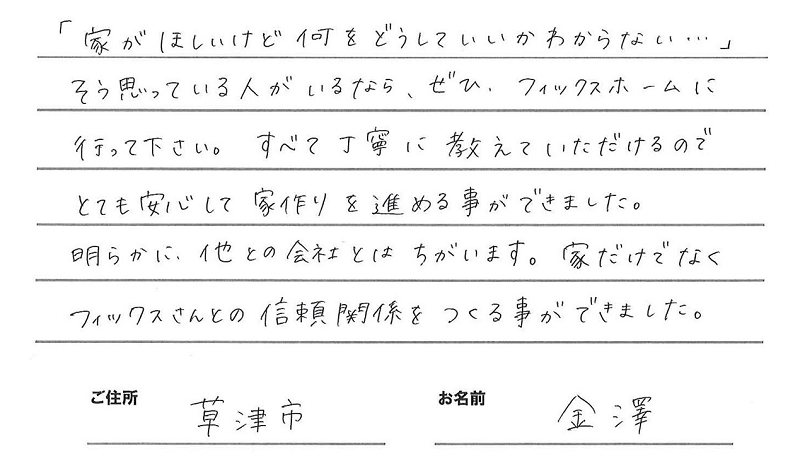 「家がほしいけど何をどうしていいかわからない…」
そう思っている人がいるなら、ぜひ、フィックスホームに
行って下さい。すべて丁寧に教えていただけるので
とても安心して家作りを進める事ができました。
明らかに、他との会社とはちがいます。家だけでなく
フィックスさんとの信頼関係をつくる事ができました。
ご住所 草津市 お名前 金澤